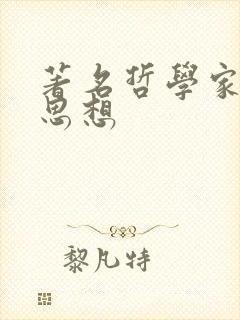 著名哲學家
思想
黎凡特